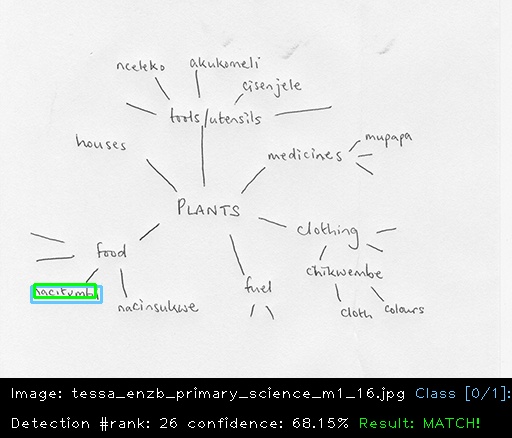 nceleko
akukomeli
cisenjele
tools/utensils
houses
mupapa
medicines
PLANTS
clothing
food
chikwembe
nacitumbi
fuel
nacinsukwe
cloth
colours
Image: tessa_enzb_primary_science_m1_16.jpg Class [0/1]:
Detection #rank: 26 confidence: 68.15% Result: MATCH!